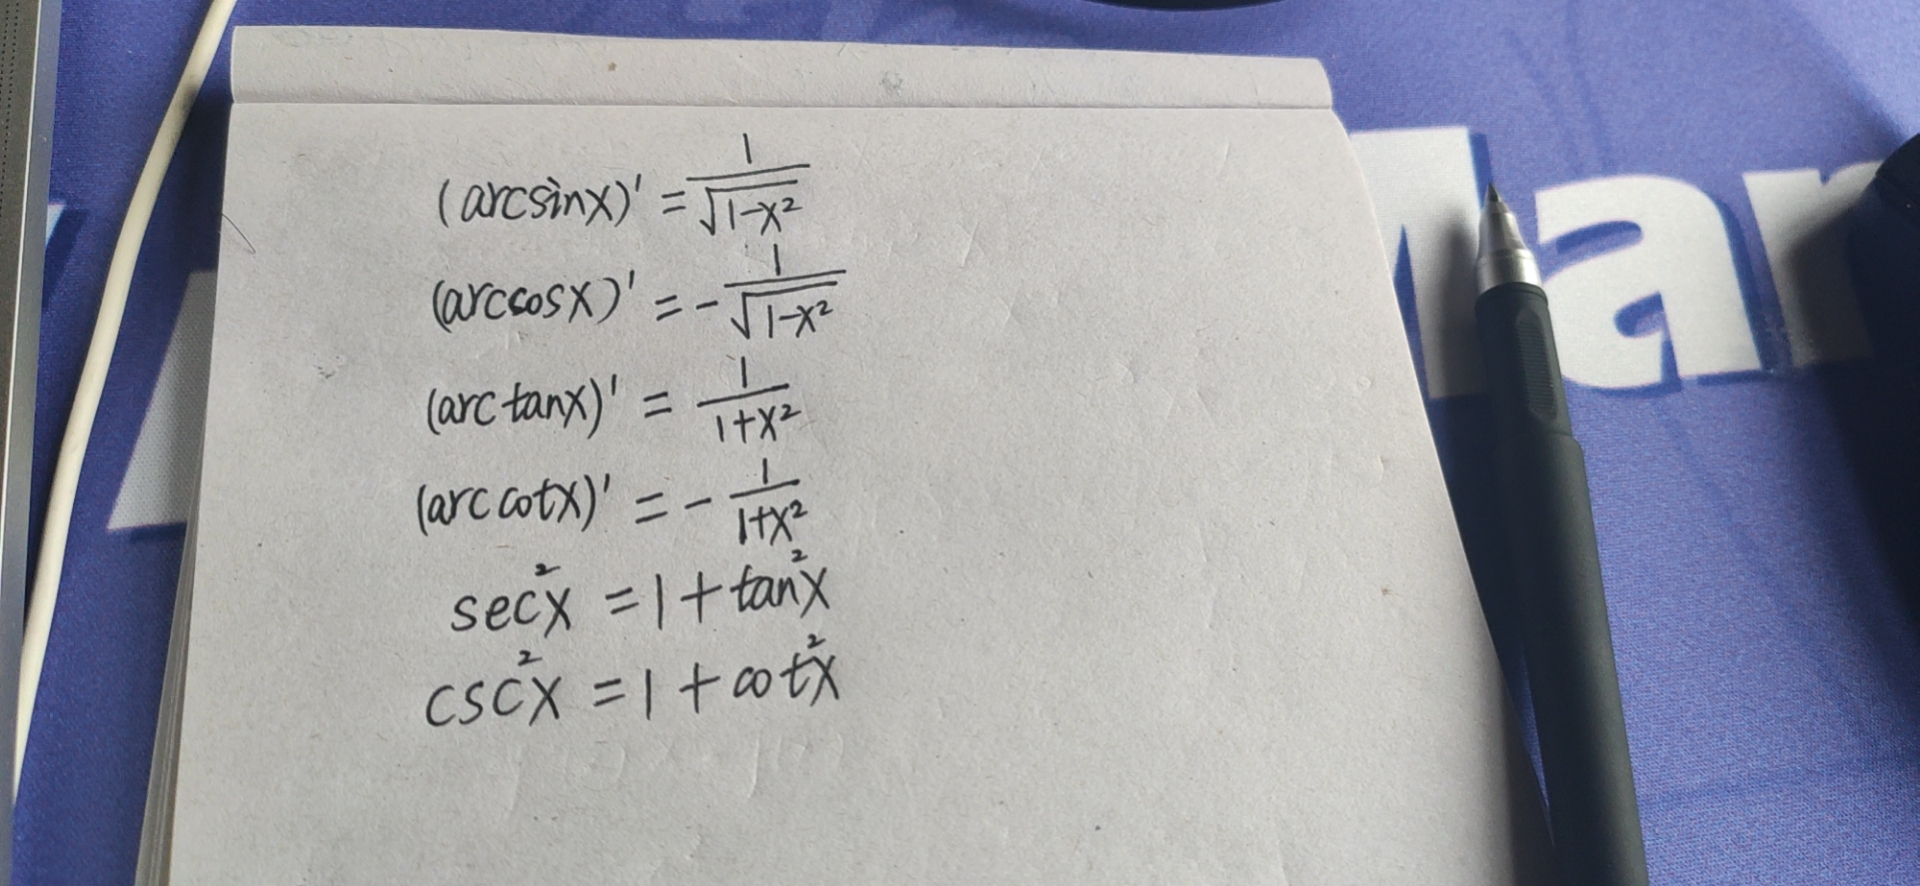 (arcsinx)' = 1/√(1-x²)
(arccosx)' = - 1/√(1-x²)
(arctanx)' = 1/(1+x²)
(arccotx)' = - 1/(1+x²)
sec²x = 1 + tan²x
csc²x = 1 + cot²x